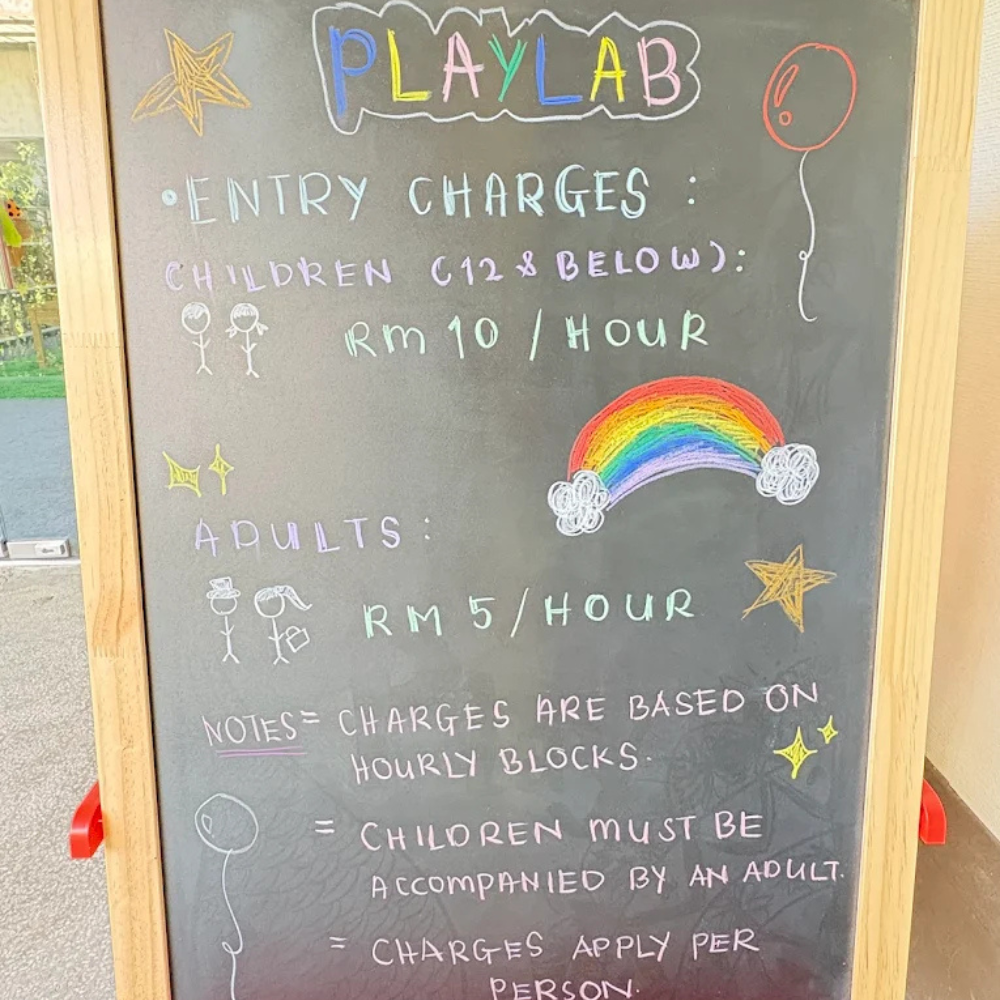 PLAYLAB
•ENTRY CHARGES :
CHILDREN (12 & BELOW):
RM 10 / HOUR
ADULTS:
RM 5/HOUR
NOTES= CHARGES ARE BASED ON
HOURLY BLOCKS.
= CHILDREN MUST BE
ACCOMPANIED BY AN ADULT.
= CHARGES APPLY PER
PERSON.